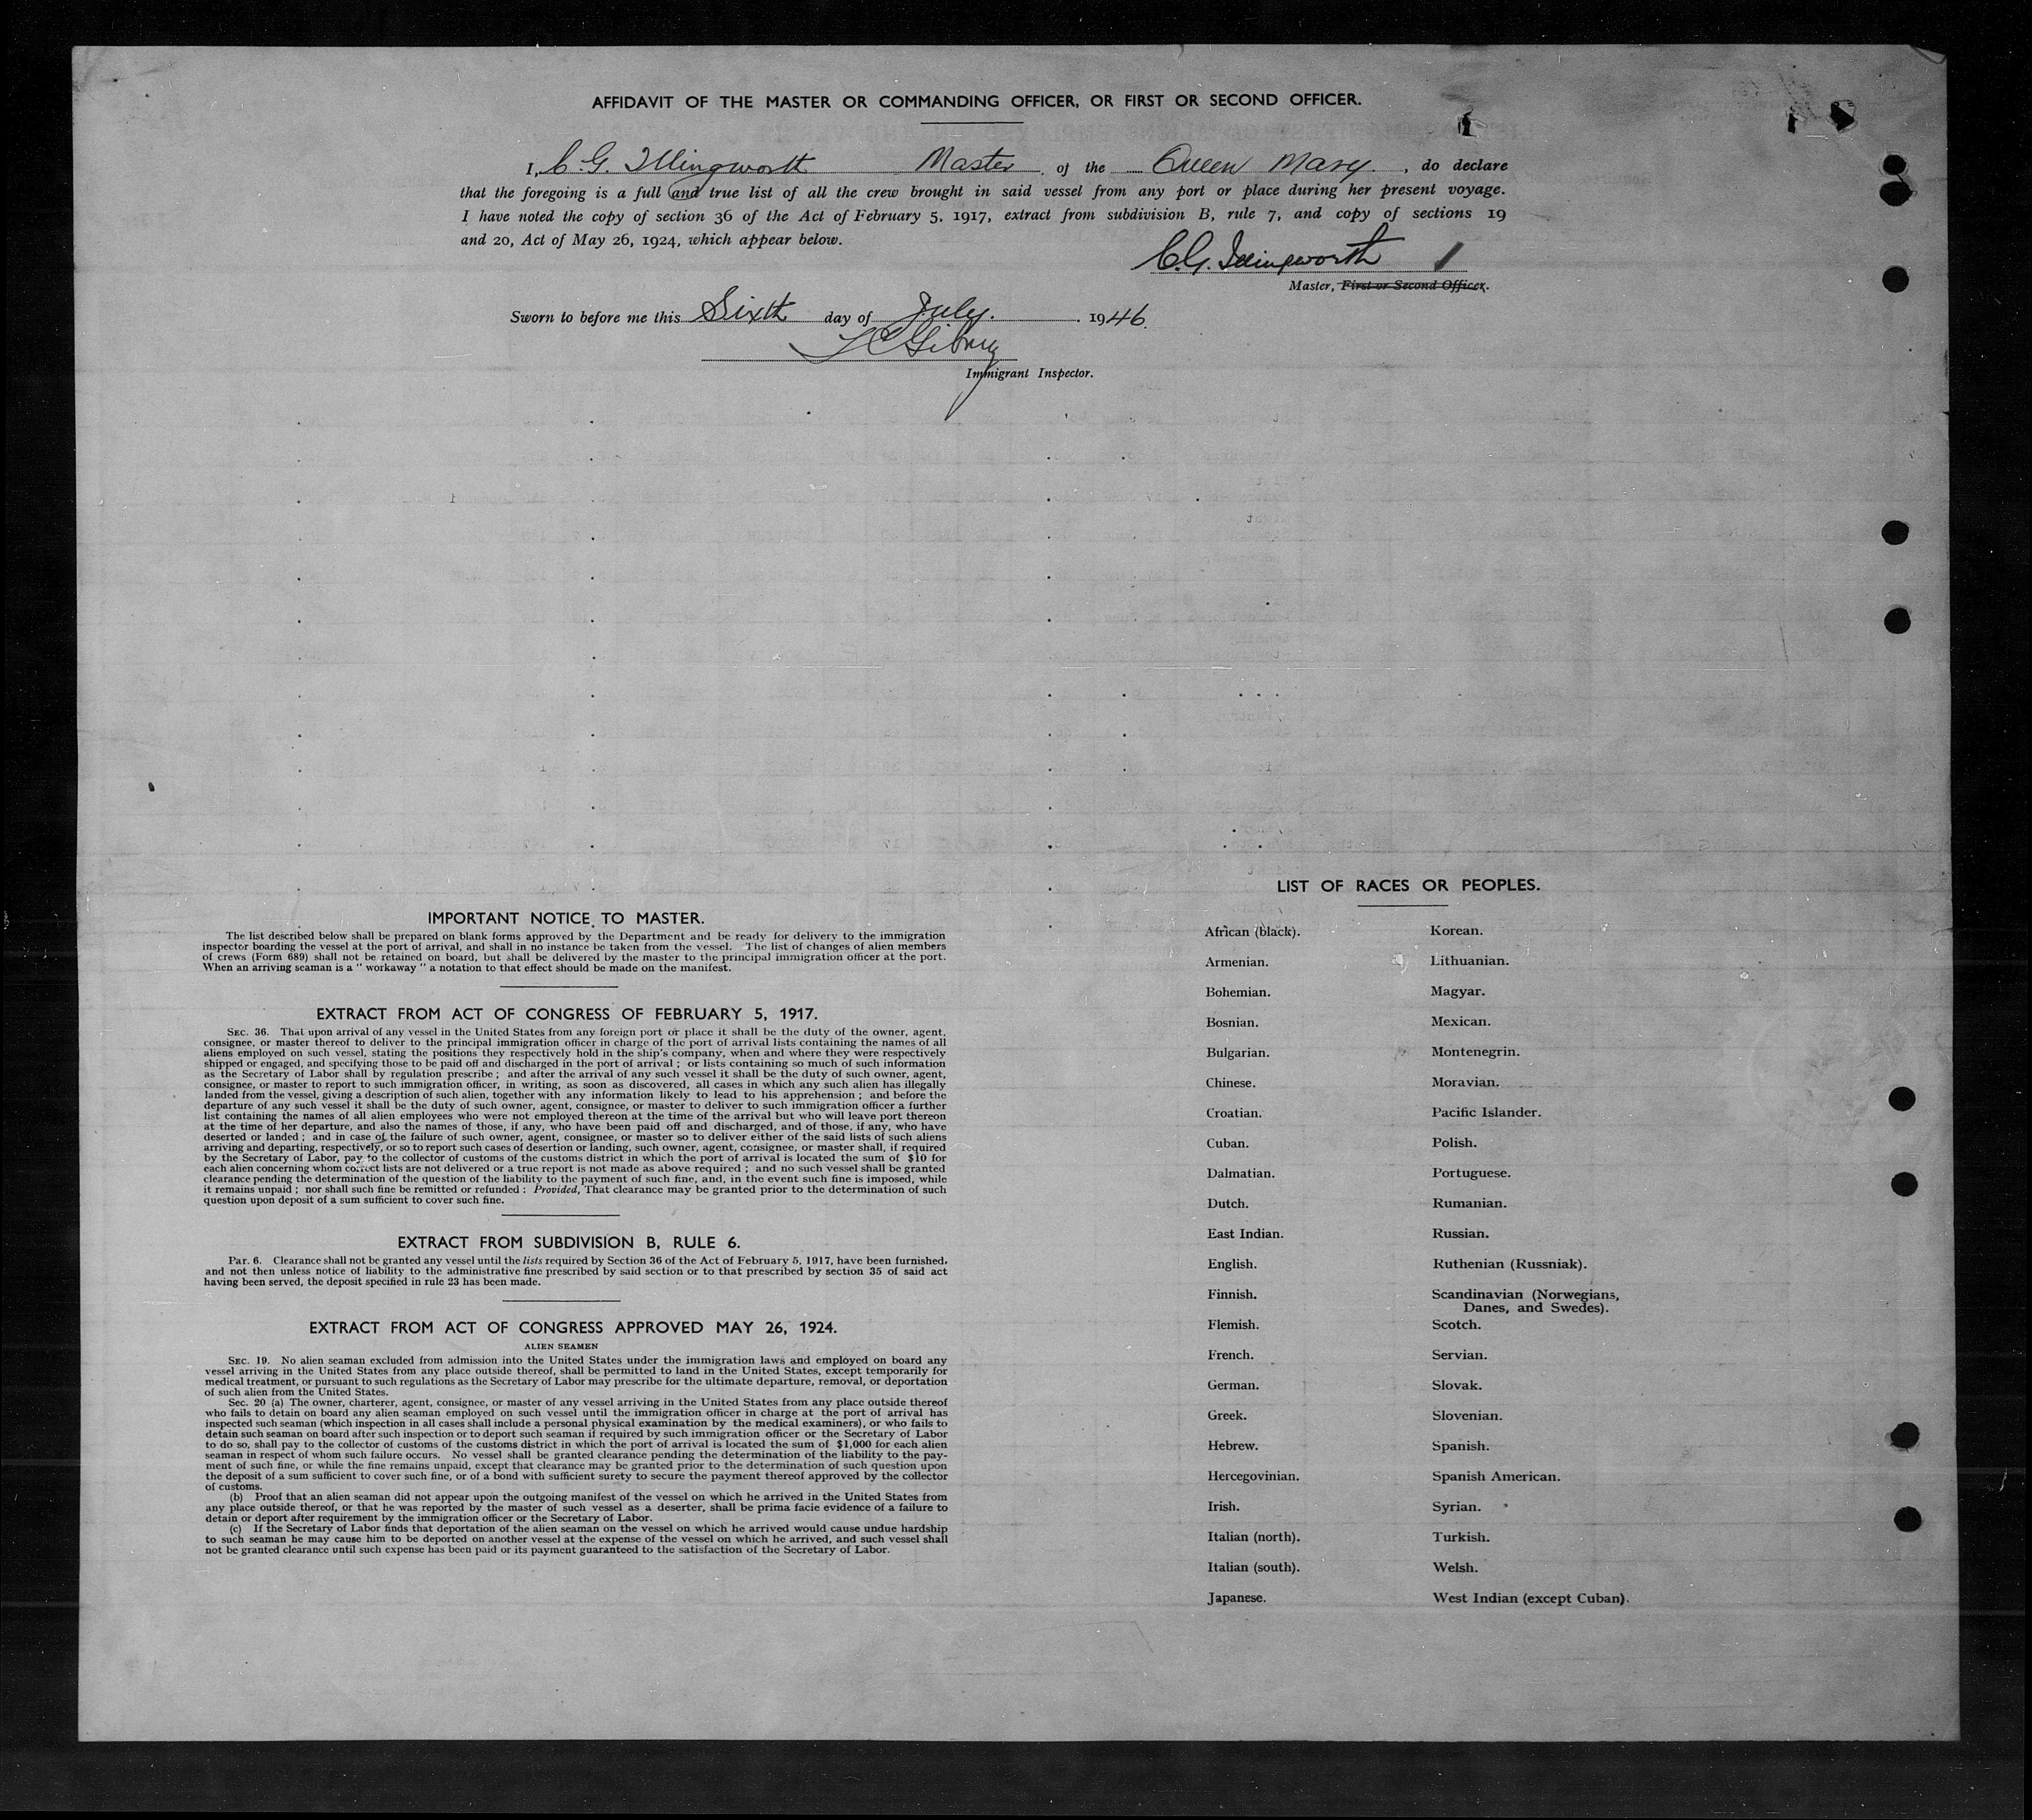 AFFIDAVIT OF THE MASTER OR COMMANDING OFFICER, OR FIRST OR SECOND OFFICER.
I, C. G. Illingworth Master of the Queen Mary, do declare
that the foregoing is a full and true list of all the crew brought in said vessel from any port or place during her present voyage.
I have noted the copy of section 36 of the Act of February 5, 1917, extract from subdivision B, rule 7, and copy of sections 19
and 20, Act of May 26, 1924, which appear below.
C. G. Illingworth
Master, First or Second Officer.
Sworn to before me this Sixth day of July. 1946.
Immigrant Inspector.
IMPORTANT NOTICE TO MASTER.
The list described below shall be prepared on blank forms approved by the Department and be ready for delivery to the immigration
inspector boarding the vessel at the port of arrival, and shall in no instance be taken from the vessel. The list of changes of alien members
of crews (Form 689) shall not be retained on board, but shall be delivered by the master to the principal immigration officer at the port.
When an arriving seaman is a " workaway " a notation to that effect should be made on the manifest.
EXTRACT FROM ACT OF CONGRESS OF FEBRUARY 5, 1917.
SEC. 36. That upon arrival of any vessel in the United States from any foreign port or place it shall be the duty of the owner, agent,
consignee, or master thereof to deliver to the principal immigration officer in charge of the port of arrival lists containing the names of all
aliens employed on such vessel, stating the positions they respectively hold in the ship's company, when and where they were respectively
shipped or engaged, and specifying those to be paid off and discharged in the port of arrival ; or lists containing so much of such information
as the Secretary of Labor shall by regulation prescribe ; and after the arrival of any such vessel it shall be the duty of such owner, agent,
consignee, or master to report to such immigration officer, in writing, as soon as discovered, all cases in which any such alien has illegally
landed from the vessel, giving a description of such alien, together with any information likely to lead to his apprehension ; and before the
departure of any such vessel it shall be the duty of such owner, agent, consignee, or master to deliver to such immigration officer a further
list containing the names of all alien employees who were not employed thereon at the time of the arrival but who will leave port thereon
at the time of her departure, and also the names of those, if any, who have been paid off and discharged, and of those, if any, who have
deserted or landed ; and in case of the failure of such owner, agent, consignee, or master so to deliver either of the said lists of such aliens
arriving and departing, respectively, or so to report such cases of desertion or landing, such owner, agent, consignee, or master shall, if required
by the Secretary of Labor, pay to the collector of customs of the customs district in which the port of arrival is located the sum of $10 for
each alien concerning whom correct lists are not delivered or a true report is not made as above required ; and no such vessel shall be granted
clearance pending the determination of the question of the liability to the payment of such fine, and, in the event such fine is imposed, while
it remains unpaid ; nor shall such fine be remitted or refunded : Provided, That clearance may be granted prior to the determination of such
question upon deposit of a sum sufficient to cover such fine.
EXTRACT FROM SUBDIVISION B, RULE 6.
Par. 6. Clearance shall not be granted any vessel until the lists required by Section 36 of the Act of February 5, 1917, have been furnished,
and not then unless notice of liability to the administrative fine prescribed by said section or to that prescribed by section 35 of said act
having been served, the deposit specified in rule 23 has been made.
EXTRACT FROM ACT OF CONGRESS APPROVED MAY 26, 1924.
ALIEN SEAMEN
SEC. 19. No alien seaman excluded from admission into the United States under the immigration laws and employed on board any
vessel arriving in the United States from any place outside thereof, shall be permitted to land in the United States, except temporarily for
medical treatment, or pursuant to such regulations as the Secretary of Labor may prescribe for the ultimate departure, removal, or deportation
of such alien from the United States.
Sec. 20 (a) The owner, charterer, agent, consignee, or master of any vessel arriving in the United States from any place outside thereof
who fails to detain on board any alien seaman employed on such vessel until the immigration officer in charge at the port of arrival has
inspected such seaman (which inspection in all cases shall include a personal physical examination by the medical examiners), or who fails to
detain such seaman on board after such inspection or to deport such seaman if required by such immigration officer or the Secretary of Labor
to do so, shall pay to the collector of customs of the customs district in which the port of arrival is located the sum of $1,000 for each alien
seaman in respect of whom such failure occurs. No vessel shall be granted clearance pending the determination of the liability to the pay-
ment of such fine, or while the fine remains unpaid, except that clearance may be granted prior to the determination of such question upon
the deposit of a sum sufficient to cover such fine, or of a bond with sufficient surety to secure the payment thereof approved by the collector
of customs.
(b) Proof that an alien seaman did not appear upon the outgoing manifest of the vessel on which he arrived in the United States from
any place outside thereof, or that he was reported by the master of such vessel as a deserter, shall be prima facie evidence of a failure to
detain or deport after requirement by the immigration officer or the Secretary of Labor.
(c) If the Secretary of Labor finds that deportation of the alien seaman on the vessel on which he arrived would cause undue hardship
to such seaman he may cause him to be deported on another vessel at the expense of the vessel on which he arrived, and such vessel shall
not be granted clearance until such expense has been paid or its payment guaranteed to the satisfaction of the Secretary of Labor.
LIST OF RACES OR PEOPLES.
African (black). Korean.
Armenian. Lithuanian.
Bohemian. Magyar.
Bosnian. Mexican.
Bulgarian. Montenegrin.
Chinese. Moravian.
Croatian. Pacific Islander.
Cuban. Polish.
Dalmatian. Portuguese.
Dutch. Rumanian.
East Indian. Russian.
English. Ruthenian (Russniak).
Finnish. Scandinavian (Norwegians,
Danes, and Swedes).
Flemish. Scotch.
French. Servian.
German. Slovak.
Greek. Slovenian.
Hebrew. Spanish.
Hercegovinian. Spanish American.
Irish. Syrian.
Italian (north). Turkish.
Italian (south). Welsh.
Japanese. West Indian (except Cuban).